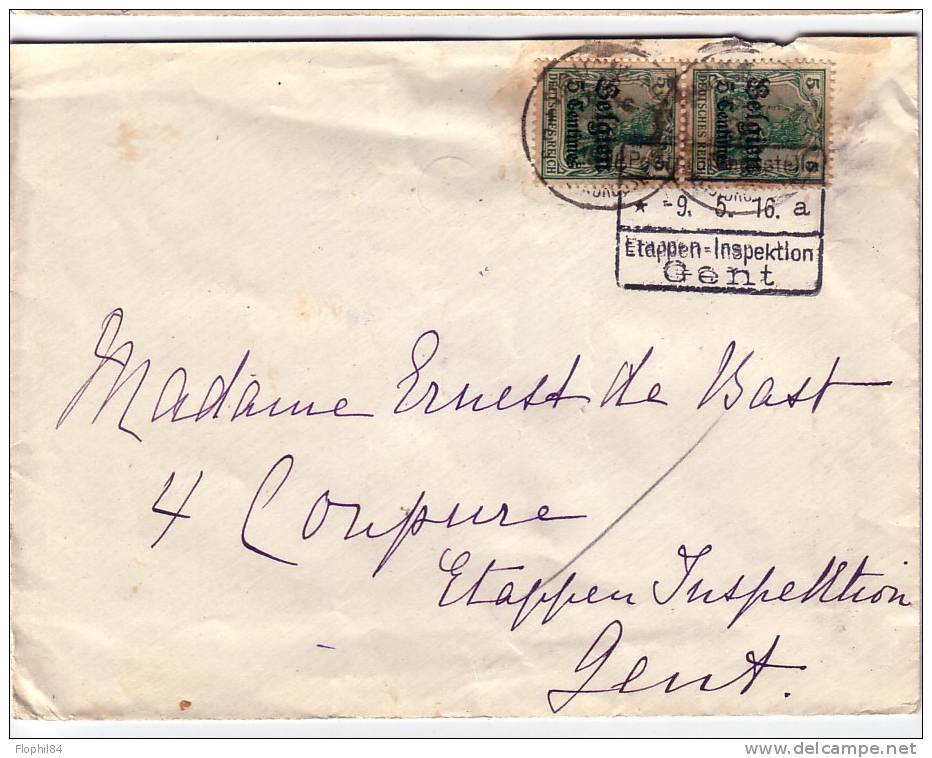 Belgien
5 Centimes
DEUTSCHES REICH
5
5
Belgien
5 Centimes
DEUTSCHES REICH
5
5
* -9. 5. 16. a
Etappen-Inspektion
Gent
Madame Ernest de Bast
4 Coupure
Etappen Inspektion
Gent.
Flophil84
www.delcampe.net